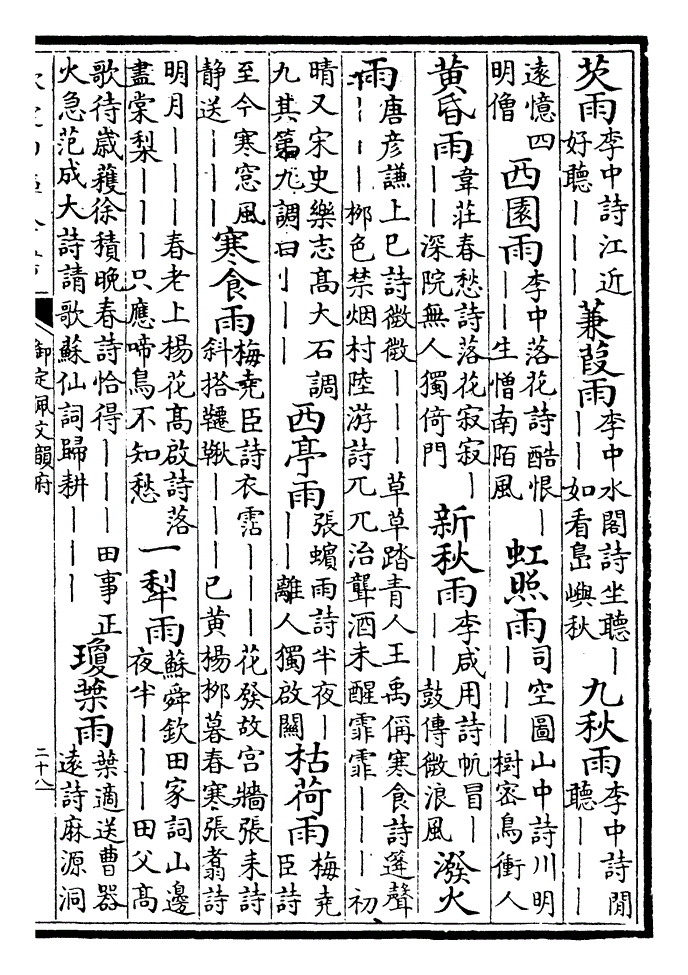 芡雨李中詩江近好聽｜｜｜蒹葭雨李中水閣詩坐聽｜｜｜如看島嶼秋九秋雨李中詩閒聽｜｜｜
遠憶四明僧西園雨李中落花詩酷恨｜｜｜生憎南陌風虹照雨司空圖山中詩川明｜｜｜樹密鳥衝人
黄昏雨韋莊春愁詩落花寂寂｜｜｜深院無人獨倚門新秋雨李咸用詩帆冒｜｜｜鼓傳微浪風潑火
雨唐彦謙上巳詩微微｜｜｜草草踏青人王禹偁寒食詩蓬聲｜｜｜栁色禁烟村陸游詩兀兀治聾酒未醒霏霏｜｜｜初
晴又宋史樂志髙大石調九其第九調曰刂｜｜西亭雨張蠙雨詩半夜｜｜｜離人獨啟關枯荷雨梅堯臣詩
至今寒窓風静送｜｜｜寒食雨梅堯臣詩衣霑｜｜｜花發故宫牆張耒詩斜搭韆鞦｜｜｜已黄楊栁暮春寒張翥詩
明月｜｜｜春老上楊花髙啟詩落盡棠梨｜｜｜只應啼鳥不知愁一犂雨蘇舜欽田家詞山邊夜半｜｜｜田父髙
歌待歲穫徐積晚春詩恰得｜｜｜田事正火急范成大詩請歌蘇仙詞歸耕｜｜｜瓊葉雨葉適送曹器遠詩麻源洞
御定佩文韻府
二十八